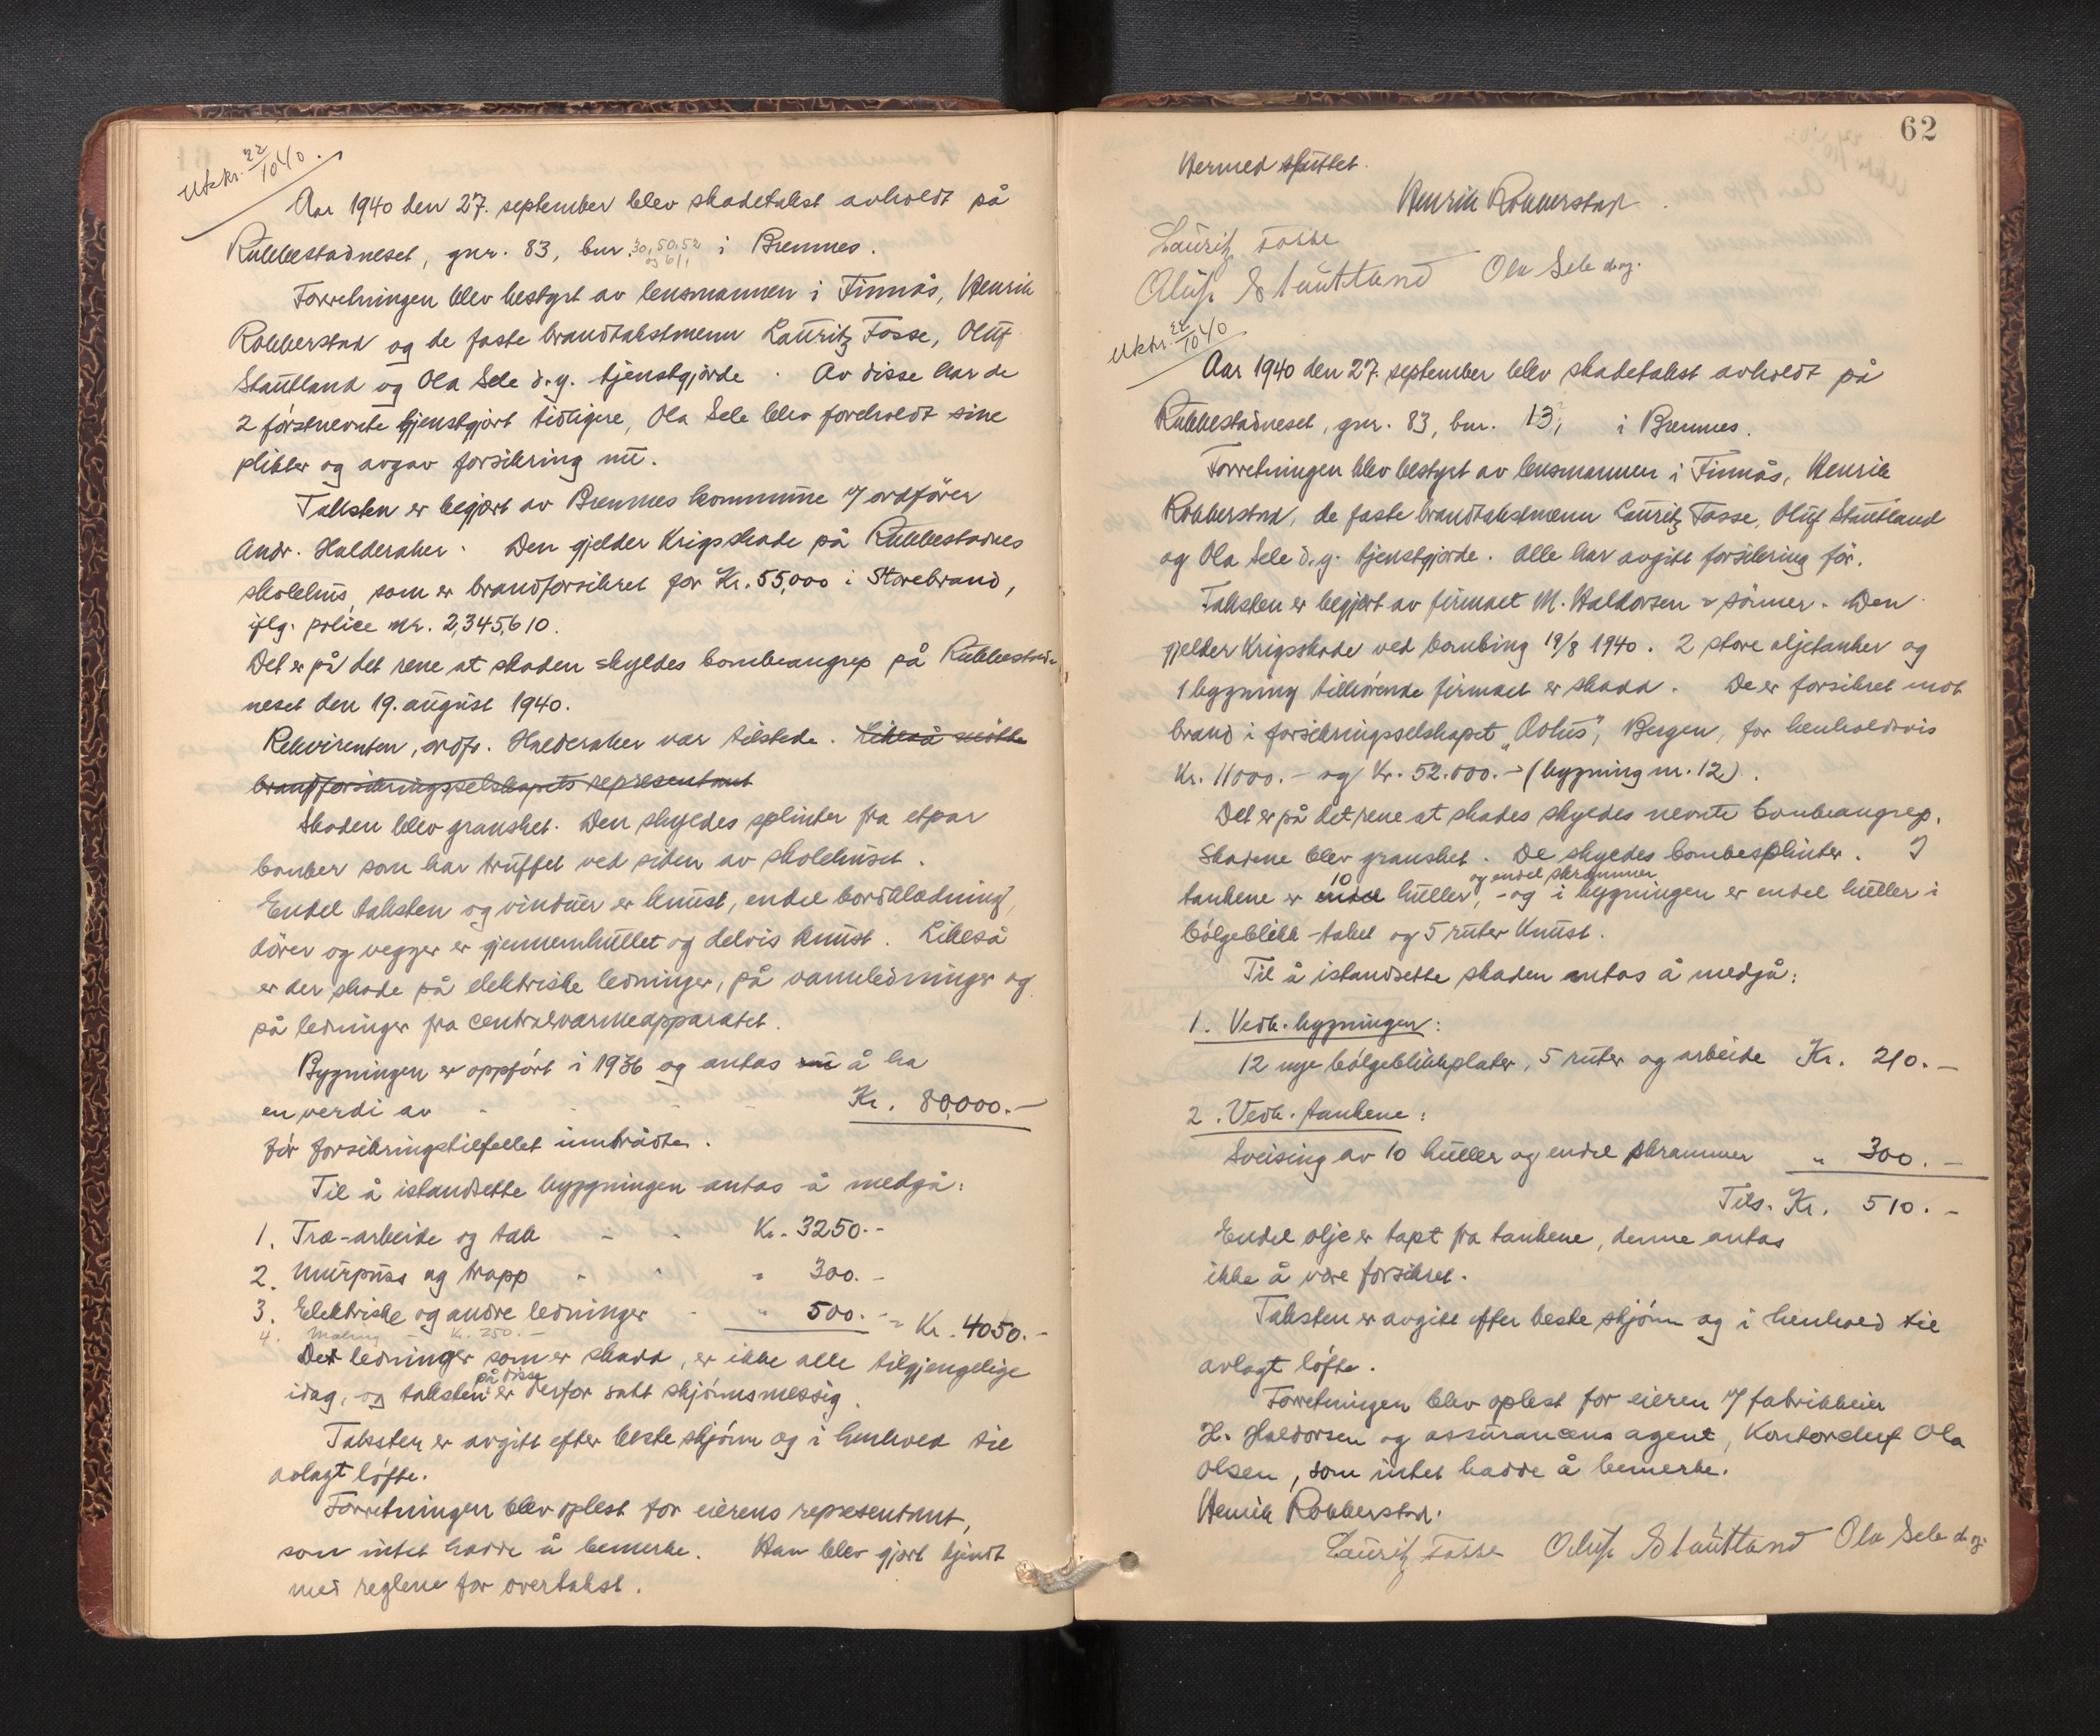 Utskr. 22/10 40.
Aar 1940 den 27. september blev skadetakst avholdt på
Rubbestadneset, gnr. 83, bnr. 30, 50, 52 i Bremnes.
og 611
Forretningen blev bestyrt av lensmannen i Finnås, Henrik
Robberstad og de faste brandtakstmenn Lauritz Fosse, Oluf
Stautland og Ola Sele d.y. tjenstgjorde. Av disse har de
2 førstnevnte tjenstgjort tidligere, Ola Sele blev foreholdt sine
plikter og avgav forsikring nu.
Taksten er begjært av Bremnes kommune v/ ordfører
Andr. Halderaker. Den gjelder Krigsskade på Rubbestadnes
skolehus, som er brandforsikret for Kr. 55,000 i Storebrand,
iflg. police nr. 2,345,610.
Det er på det rene at skaden skyldes bombeangrep på Rubbestad-
neset den 19. august 1940.
Rekvirenten, ordf. Halderaker var tilstede. Likeså møtte
brandforsikringsselskapets representant
Skaden blev gransket. Den skyldes splinter fra etpar
bomber som har truffet ved siden av skolehuset.
Endel taksten og vinduer er knust, endel bordklædning,
dører og vegger er gjennemhullet og delvis knust. Likeså
er der skade på elektriske ledninger, på vannledninger og
på ledninger fra centralvarmeapparatet.
Bygningen er oppført i 1936 og antas nu å ha
en verdi av Kr. 80,000.-
før forsikringstilfellet inntrådte.
Til å istandsette bygningen antas å medgå:
1. Træ-arbeide og tak - - Kr. 3250.-
2. Murpuss og trapp - - " 300.-
3. Elektriske og andre ledninger - " 500.- = Kr. 4050.-
4. Maling - Kr. 250.-
Det ledninger som er skadd, er ikke alle tilgjengelige
idag, og taksten på disse er derfor satt skjønnsmessig.
Taksten er avgitt efter beste skjønn og i henhold til
avlagt løfte.
Forretningen blev oplest for eierens representant,
som intet hadde å bemerke. Han blev gjort kjendt
med reglene for overtakst.
62
Hermed sluttet.
Henrik Robberstad.
Lauritz Fosse
Oluf Stautland Ola Sele d.y.
Utskr. 22/10 40
Aar 1940 den 27. september blev skadetakst avholdt på
Rubbestadneset, gnr. 83, bnr. 13, i Bremnes.
Forretningen blev bestyrt av lensmannen i Finnås, Henrik
Robberstad, de faste brandtakstmenn Lauritz Fosse, Oluf Stautland
og Ola Sele d.y. tjenstgjorde. Alle har avgitt forsikring før.
Taksten er begjært av firmaet M. Haldorsen & sønner. Den
gjelder Krigsskade ved bombing 19/8 1940. 2 store oljetanker og
1 bygning tilhørende firmaet er skadd. De er forsikret mot
brand i forsikringsselskapet "Æolus", Bergen, for henholdsvis
Kr. 11000.- og Kr. 52.000.- (bygning nr. 12).
Det er på det rene at skades skyldes nevnte bombeangrep.
Skadene blev gransket. De skyldes bombesplinter. I
tankene er endel 10 huller, og endel skrammer - og i bygningen er endel huller i
bølgeblikk-taket og 5 ruter knust.
Til å istandsette skaden antas å medgå:
1. Vedk. bygningen:
12 nye bølgeblikkplater, 5 ruter og arbeide Kr. 210.-
2. Vedk. tankene:
Sveising av 10 huller og endel skrammer " 300.-
Tils. Kr. 510.-
Endel olje er tapt fra tankene, denne antas
ikke å være forsikret.
Taksten er avgitt efter beste skjønn og i henhold til
avlagt løfte.
Forretningen blev oplest for eieren v/ fabrikkeier
H. Haldorsen og assurancens agent, Kontorchef Ola
Olsen, som intet hadde å bemerke.
Henrik Robberstad.
Lauritz Fosse Oluf Stautland Ola Sele d.y.